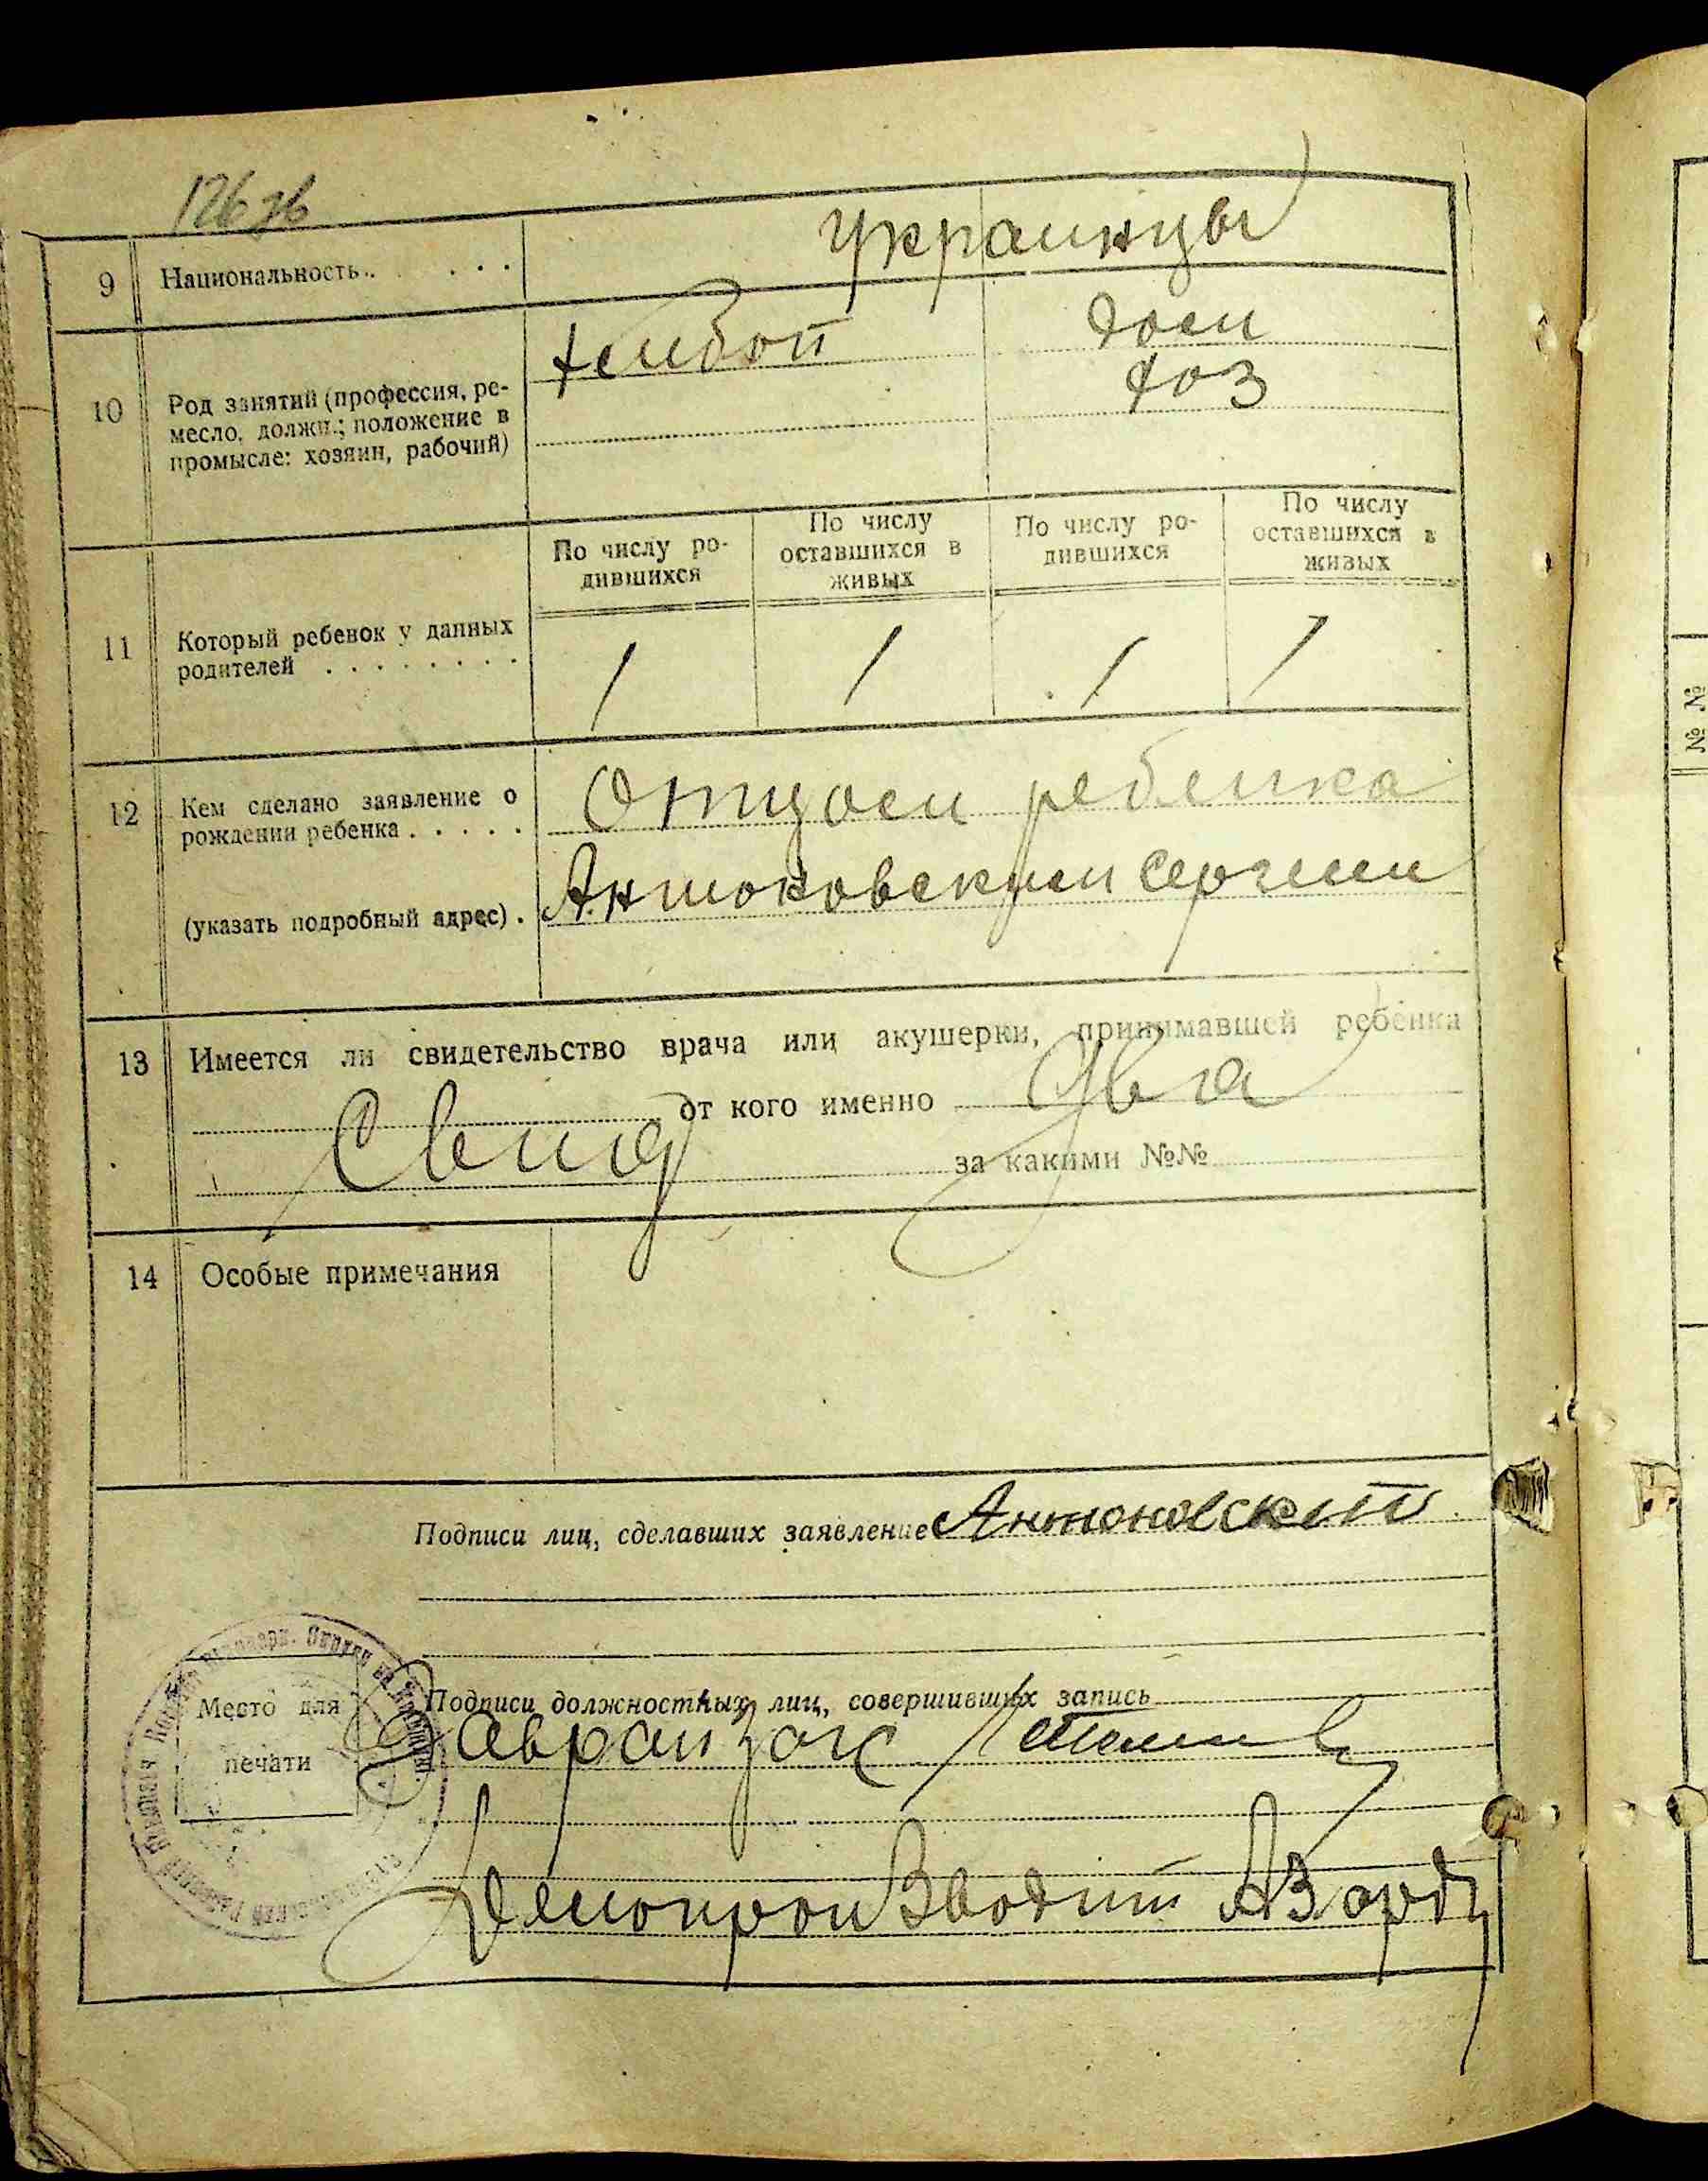 126 зв
9 Национальность . . . . Украинцы
10 Род занятий (профессия, ре-
месло, должн.; положение в
промысле: хозяин, рабочий)
дом
хоз
По числу ро-
дившихся
По числу
оставшихся в
живых
По числу ро-
дившихся
По числу
оставшихся в
живых
11 Который ребенок у данных
родителей . . . . . . . .
1 1 1 1
12 Кем сделано заявление о
рождении ребенка . . . . .
(указать подробный адрес) .
Отцом ребенка
Антоновским Сергеем
13 Имеется ли свидетельство врача или акушерки, принимавшей ребенка
от кого именно
за какими №№
14 Особые примечания
Подписи лиц, сделавших заявление Антоновский
Подписи должностных лиц, совершивших запись
Место для
печати
Делопроизводит